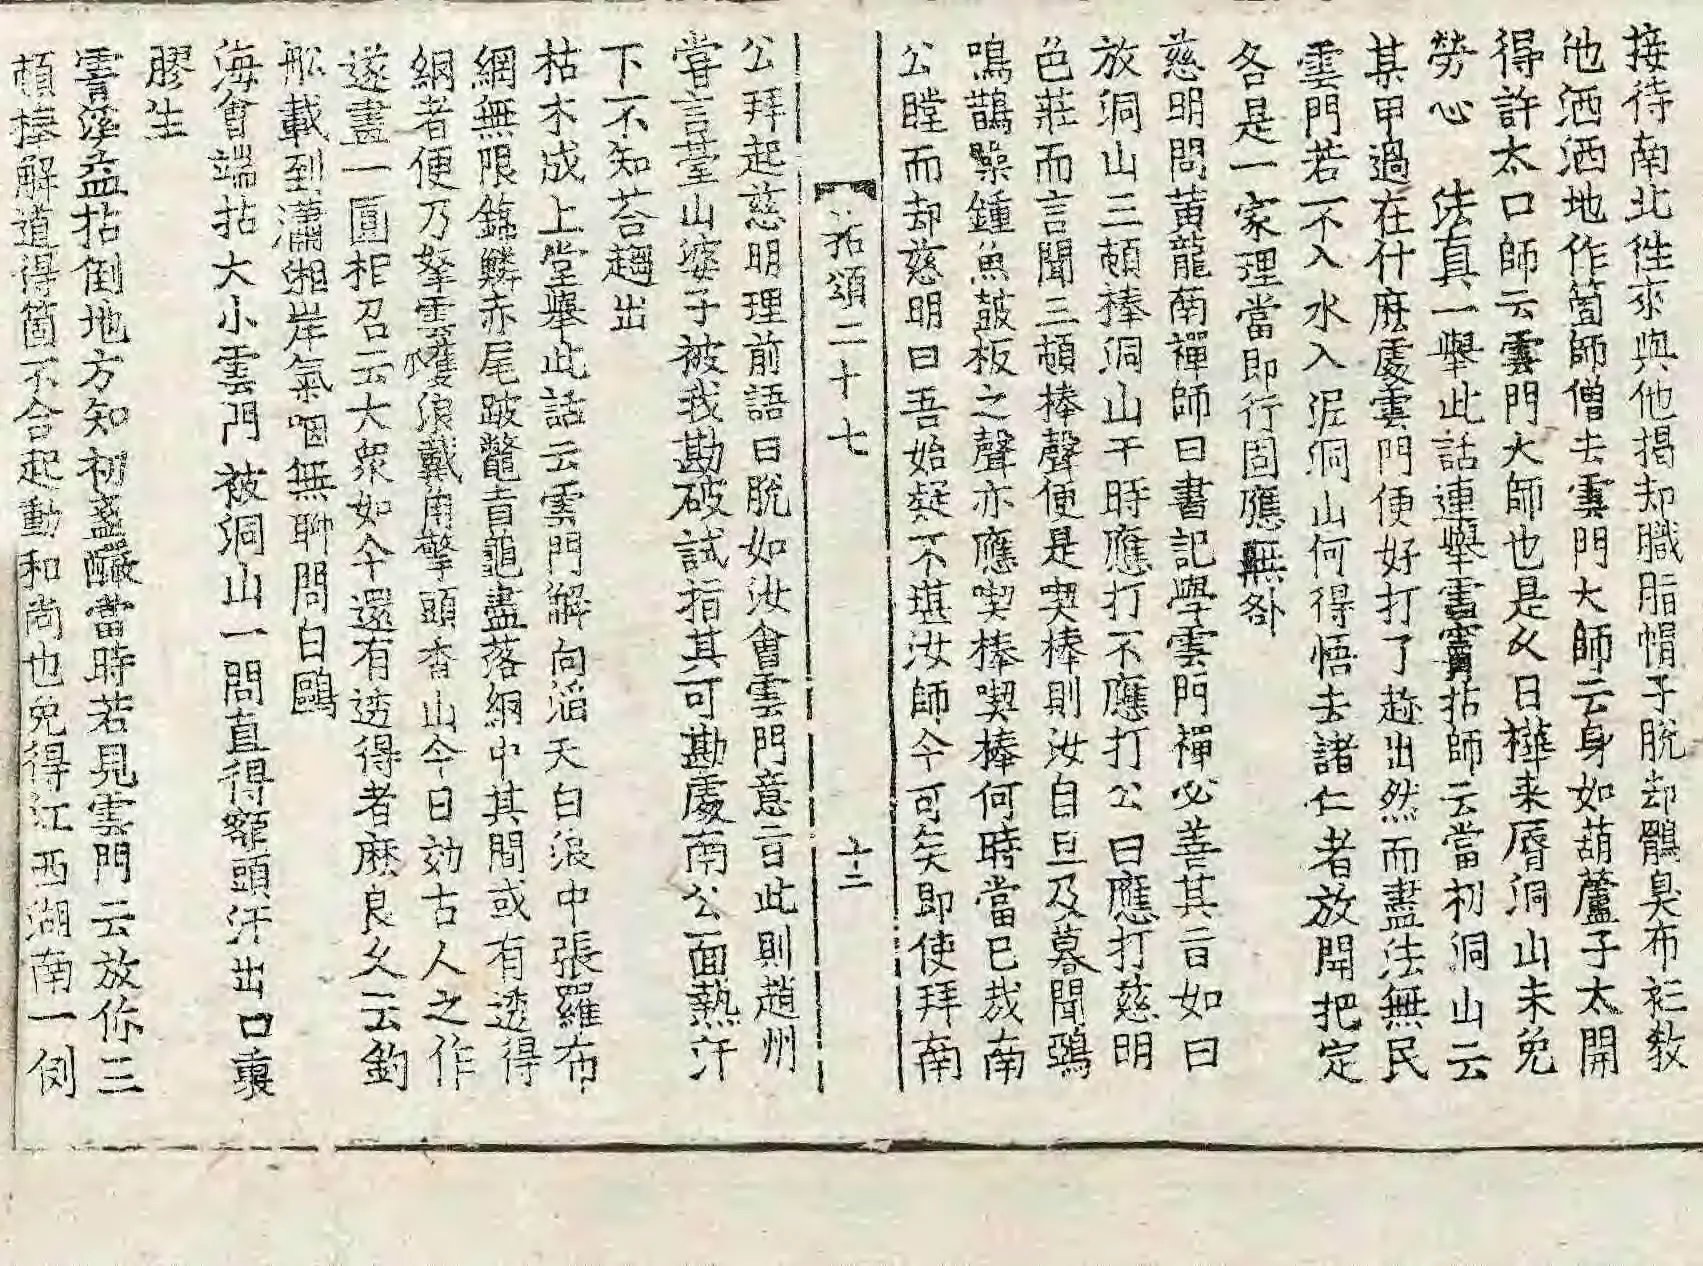 接待南北徃來與他揭却膱脂帽子脫却鶻臭布衫敎
他洒洒地作箇師僧去雲門大師云身如葫蘆子太開
得許太口師云雲門大師也是久日樺来脣洞山未免
勞心　法真一舉此話連舉雪竇拈師云當初洞山云
某甲過在什麽處雲門便好打了趂出然而盡法無民
雲門若不入水入泥洞山何得悟去諸仁者放開把定
各是一家理當即行固應無咎
慈明問黃龍南禪師曰書記學雲門禪必善其旨如曰
放洞山三頓棒洞山于時應打不應打公曰應打慈明
色莊而言聞三頓棒聲便是喫棒則汝自旦及暮聞鵶
鳴鵲噪鍾魚皷板之聲亦應喫棒喫棒何時當已哉南
公瞠而却慈明曰吾始疑不堪汝師今可矣即使拜南
拈頌二十七　十二
公拜起慈明理前語曰脫如汝會雲門意旨此則趙州
甞言䑓山婆子被我勘破試指其可勘處南公面熱汗
下不知荅趨出
枯木成上堂擧此話云雲門解向滔天白浪中張羅布
網無限錦鱗赤尾跛鼈盲龜盡落網中其間或有透得
網者便乃拏雲攫浪戴角擎頭杳山今日効古人之作
遂盡一圓相召云大衆如今還有透得者麽良久云釣
舩載到瀟湘岸氣咽無聊問白鷗
海會端拈大小雲門被洞山一問直得額頭汗出口裏
膠生
霅溪益拈倒地方知初盞釅當時若見雲門云放你三
頓棒解道得箇不合起動和尚也免得江西湖南一例